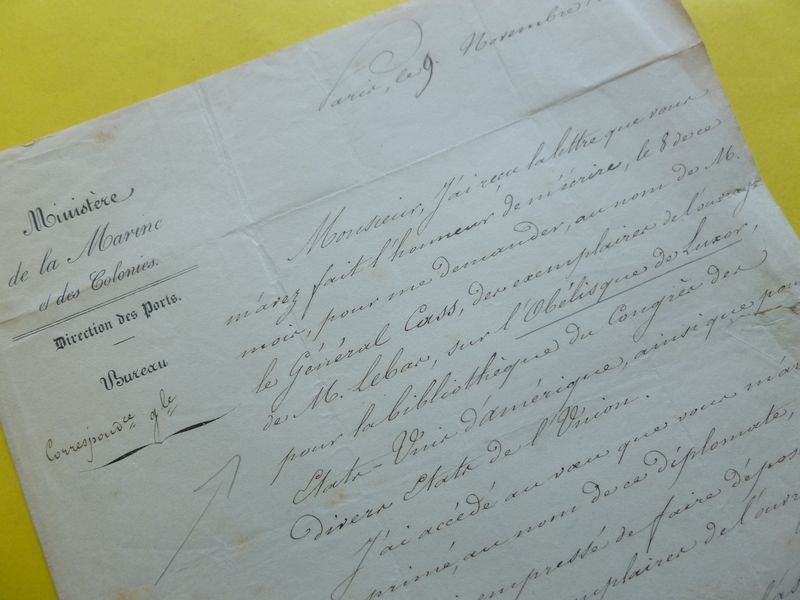 Paris, le 9 Novembre
Ministère
de la Marine
et des Colonies.
Direction des Ports.
Bureau
Correspond.ce g.le
Monsieur, J'ai reçu la lettre que vous
m'avez fait l'honneur de m'écrire, le 8 de ce
mois, pour me demander, au nom de M.
le Général Cass, des exemplaires de l'ouvrage
de M. Lebas, sur l'Obélisque de Luxor,
pour la bibliothèque du Congrès des
Etats-Unis d'amérique, ainsi que pour
divers Etats de l'Union.
J'ai accédé au vœu que vous m'avez
primé, au nom de ce diplomate,
empressé de faire dépos
emplaires de l'ouvr